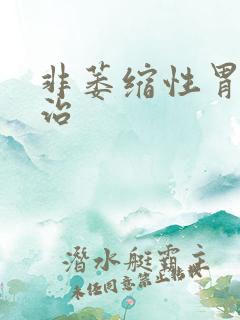 非萎缩性胃
治
潜水艇霸主
未经同意禁止转载